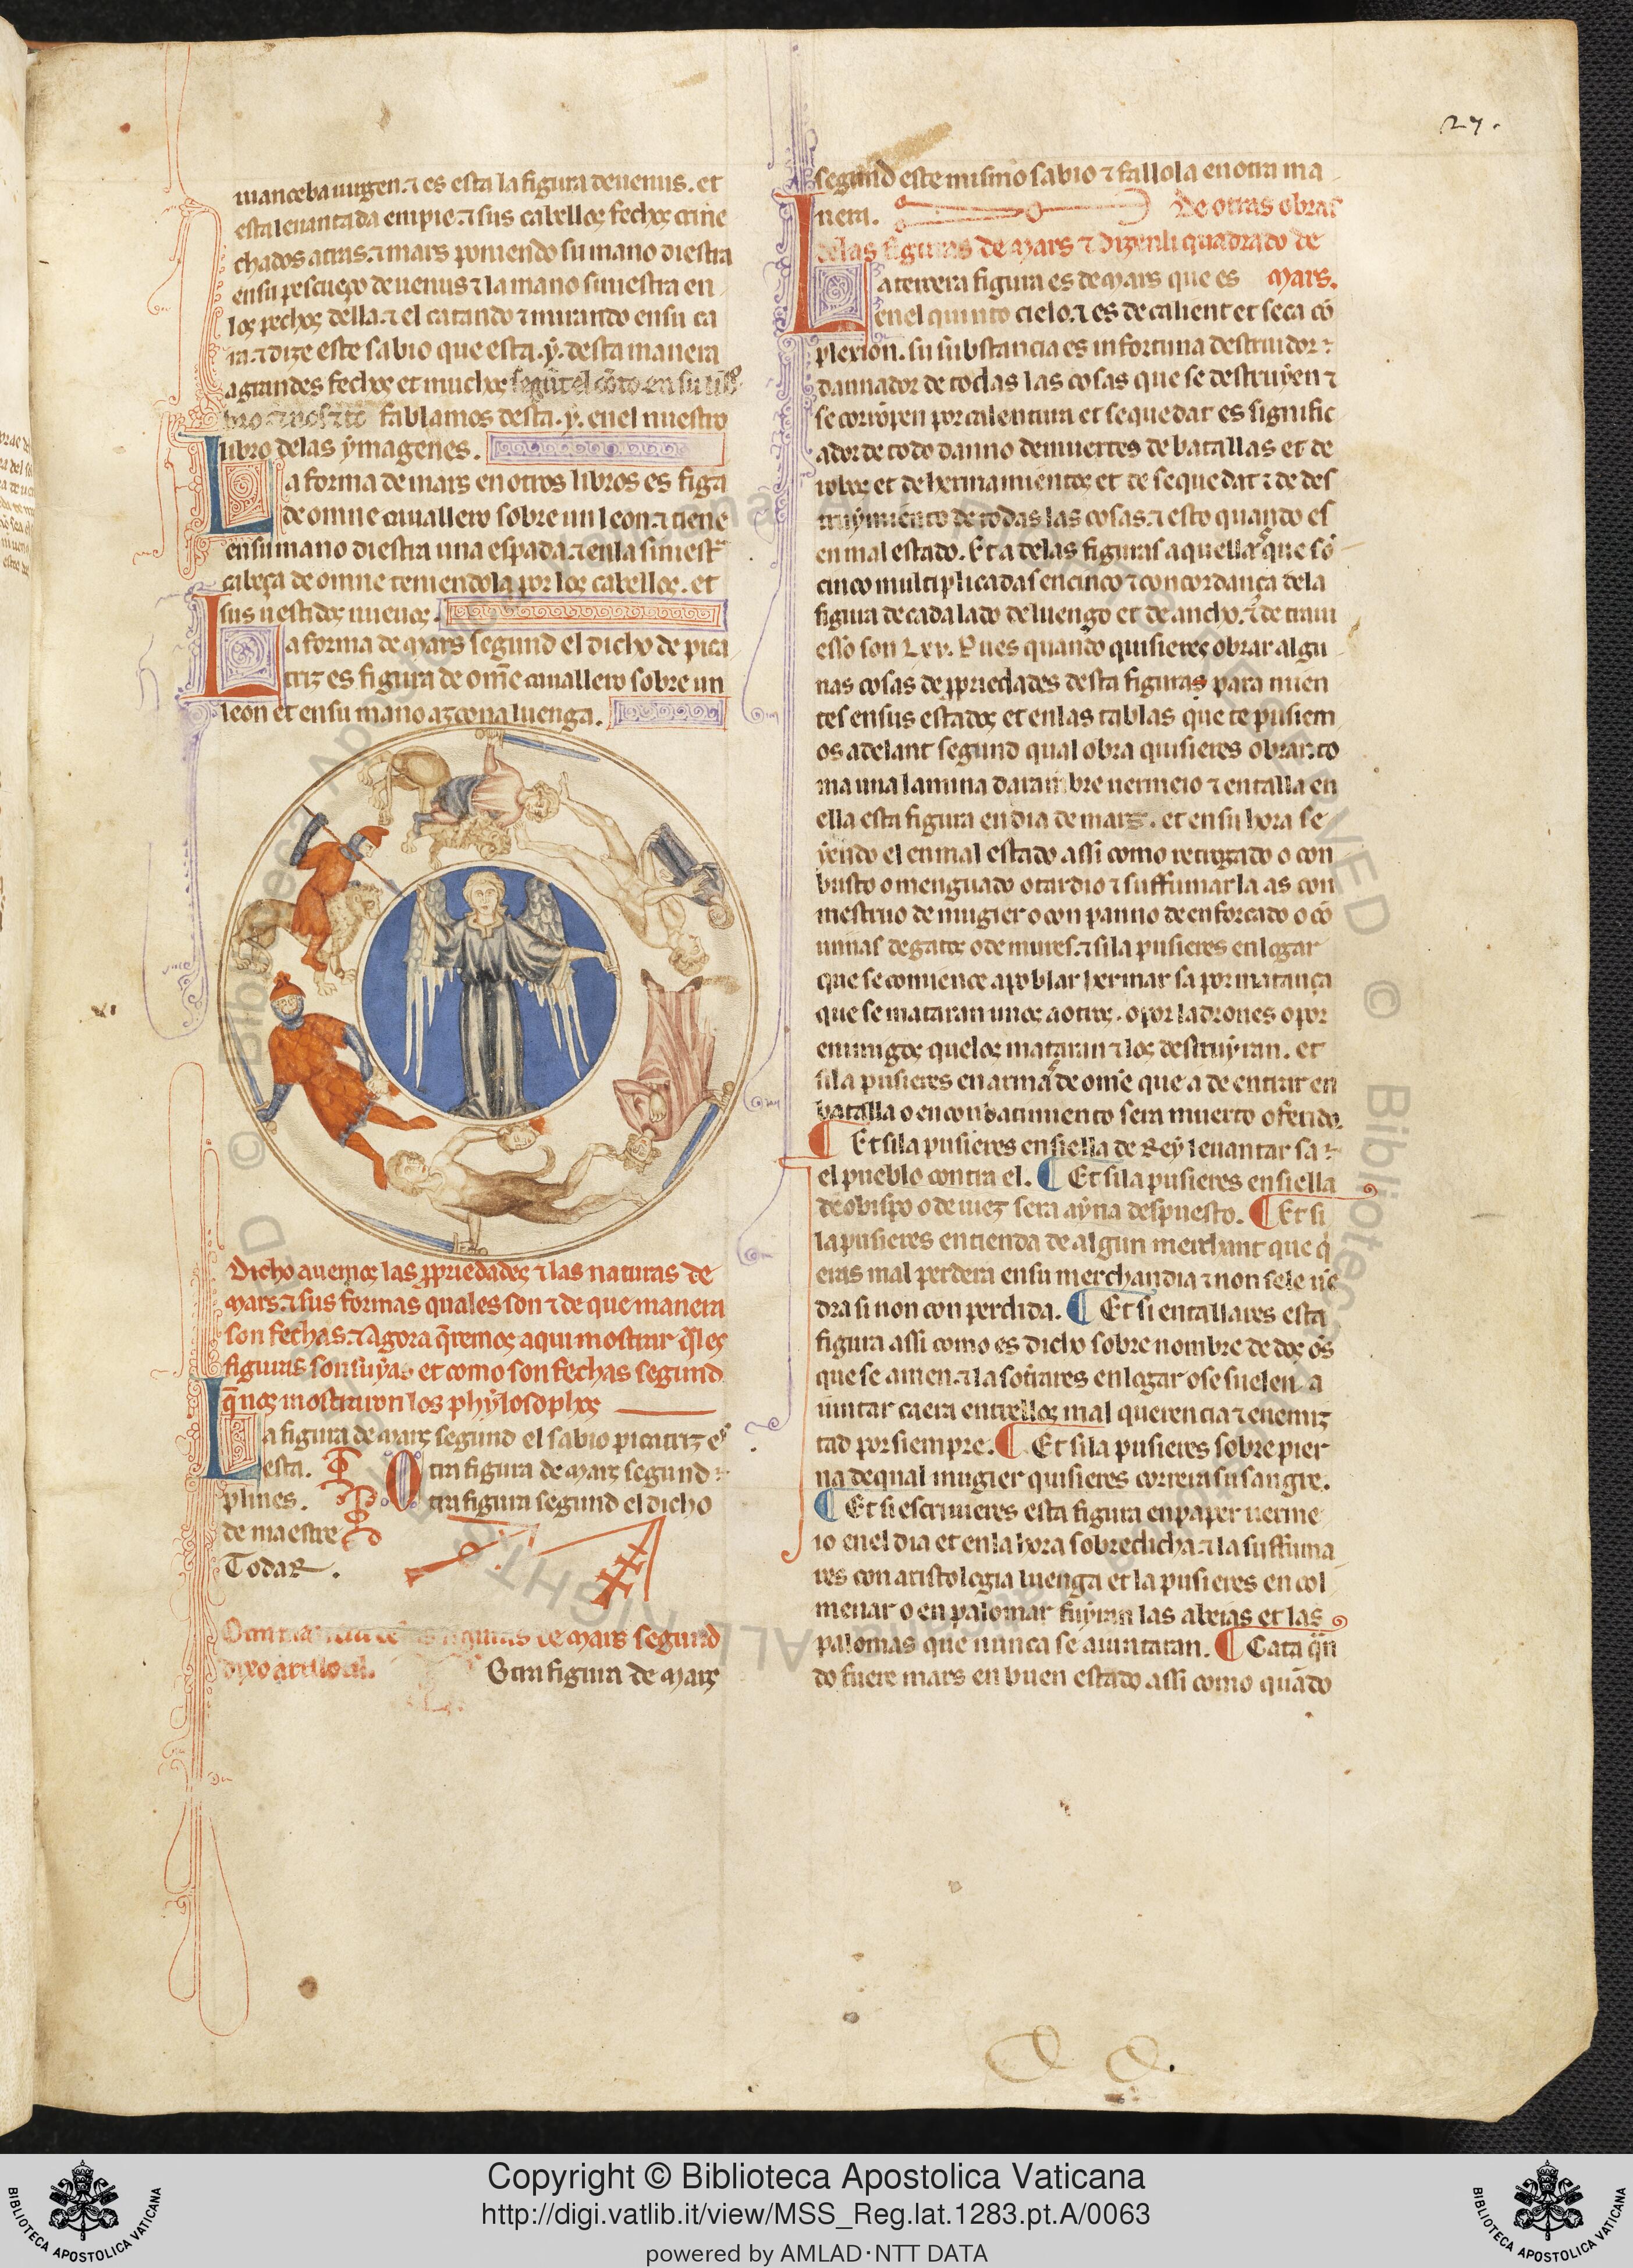 27.
manceba uirgen. ⁊ es esta la figura deuenus. et
esta leuantada en pie. ⁊ sus cabellos fechos crine
chados atras. ⁊ mars poniendo su mano diestra
en su pescueço de uenus ⁊ la mano siniestra en
los pechos della. ⁊ el catando ⁊ mirando en su ca
ra. ⁊ dize este sabio que esta .ẏ. desta manera
a grandes fechos et muchos
fablamos desta .ẏ. enel nuestro
libro delas ẏmagenes.
La forma de mars en otros libros es figa
de omne cauallero sobre un leon. ⁊ tiene
en su mano diestra una espada. ⁊ enla siniestᵃ
cabeça de omne teniendola por los cabellos. et
sus uestidos nueuos.
La forma de mars segund el dicho de pica
triz es figura de om̄e cauallero sobre un
leon et en su mano azcona luenga.
Dicho auemos las ꝓpriedades ⁊ las naturas de
mars. ⁊ sus formas quales son ⁊ de que manera
son fechas. ⁊ agora q̄remos aqui mostrar q̄les
figuras son suẏas et como son fechas segund
q̄ nos mostraron los phẏlosophos
La figura de mars segund el sabio picatriz es
esta. Otra figura de mars segund
plines. Otra figura segund el dicho
de maestre
Todar.
Otra figuras de mars segund
dixo
Otra figura de mars
segund este mismo sabio ⁊ fallola en otra ma
nera. De otras obras
delas figuras de mars ⁊ dizenli quadrado de
La tercera figura es de mars que es mars.
enel quinto cielo. ⁊ es de calient et seca cō
plexion. su substancia es infortuna destruidor ⁊
dannador de todas las cosas que se destruẏen ⁊
se corrōpen por calentura et sequedat es signific
ador de todo danno de muertes de batallas et de
robos et de hermamientos et de sequedat ⁊ de des
truẏmiento de todas las cosas. ⁊ esto quando es
en mal estado. Et a delas figuras aquella que sō
cinco multiplicadas en cinco ⁊ concordança dela
figura de cada lado de luengo et de ancho. ⁊ de traui
esso son Lxv. Pues quando quisieres obrar algu
nas cosas de ꝓpriedades desta figuras para mien
tes en sus estados et en las tablas que te pusiem
os adelant segund qual obra quisieres obrar. to
ma una lamina darambre uermeio ⁊ entalla en
ella esta figura en dia de mars. et en su hora se
ẏendo el en mal estado assi como retrogado o con
busto o menguado o tardio ⁊ suffumarla as con
mestruo de mugier o con panno de enforcado o cō
urinas de gatos o de mures. ⁊ si la pusieres en logar
que se comience a poblar hermar sa por matança
que se mataran unos a otros. o por ladrones o por
enimigos que los mataran ⁊ los destruẏran. et
si la pusieres en arma de om̄e que a de entrar en
batalla o en conbatimiento sera muerto o ferido.
¶ Et si la pusieres en siella de Reẏ leuantar sa
el pueblo contra el. ¶ Et si la pusieres en siella
de obispo o de iuez sera aẏna despuesto. ¶ Et si
la pusieres en tienda de algun merchant que q̄
eras mal perdera en su merchandia ⁊ non sele uē
dra si non con perdida. ¶ Et si entallares esta
figura assi como es dicho sobre nombre de dos oēs
que se amen. ⁊ la soterares en logar o se suelen a
iuntar caera entrellos mal querencia ⁊ enemiz
tad por siempre. ¶ Et si la pusieres sobre pier
na de qual mugier quisieres correra su sangre.
¶ Et si escriuieres esta figura en paper uerme
io enel dia et en la hora sobredicha. ⁊ la suffuma
res con aristologia luenga et la pusieres en col
menar o en palomar fuẏran las abeias et las
palomas que nunca se aiuntaran. ¶ Cata quā
do fuere mars en buen estado assi como quādo
Copyright © Biblioteca Apostolica Vaticana
http://digi.vatlib.it/view/MSS_Reg.lat.1283.pt.A/0063
powered by AMLAD·NTT DATA
BIBLIOTECA APOSTOLICA VATICANA
BIBLIOTECA APOSTOLICA VATICANA